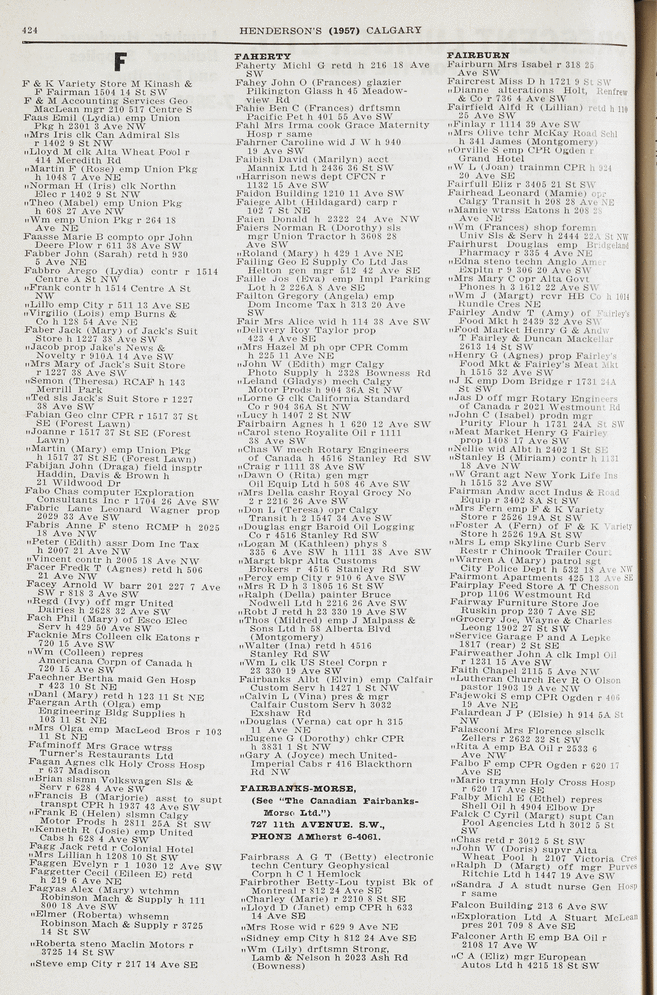 424
HENDERSON'S (1957) CALGARY
F
F & K Variety Store M Kinash &
F Fairman 1504 14 St SW
F & M Accounting Services Geo
MacLean mgr 210 517 Centre S
Faas Emil (Lydia) emp Union
Pkg h 2301 3 Ave NW
„Mrs Iris clk Can Admiral Sls
r 1402 9 St NW
„Lloyd M clk Alta Wheat Pool r
414 Meredith Rd
„Martin F (Rose) emp Union Pkg
h 1048 7 Ave NE
„Norman H (Iris) clk Northn
Elec r 1402 9 St NW
„Theo (Mabel) emp Union Pkg
h 608 27 Ave NW
„Wm emp Union Pkg r 264 18
Ave NE
Faasse Marie B compto opr John
Deere Plow r 611 38 Ave SW
Fabber John (Sarah) retd h 930
5 Ave NE
Fabbro Arego (Lydia) contr r 1514
Centre A St NW
„Frank contr h 1514 Centre A St
NW
„Lillo emp City r 511 13 Ave SE
„Virgilio (Lois) emp Burns &
Co h 128 54 Ave NE
Faber Jack (Mary) of Jack's Suit
Store h 1227 38 Ave SW
„Jacob prop Jake's News &
Novelty r 910A 14 Ave SW
„Mrs Mary of Jack's Suit Store
r 1227 38 Ave SW
„Semon (Theresa) RCAF h 143
Merrill Park
„Ted sls Jack's Suit Store r 1227
38 Ave SW
Fabian Geo clnr CPR r 1517 37 St
SE (Forest Lawn)
„Joanne r 1517 37 St SE (Forest
Lawn)
„Martin (Mary) emp Union Pkg
h 1517 37 St SE (Forest Lawn)
Fabijan John (Draga) field insptr
Haddin, Davis & Brown h
21 Wildwood Dr
Fabo Chas computer Exploration
Consultants Inc r 1704 26 Ave SW
Fabric Lane Leonard Wagner prop
2029 33 Ave SW
Fabris Anne P steno RCMP h 2025
18 Ave NW
„Peter (Edith) assr Dom Inc Tax
h 2007 21 Ave NW
„Vincent contr h 2005 18 Ave NW
Facer Fredk T (Agnes) retd h 506
21 Ave NW
Facey Arnold W barr 201 227 7 Ave
SW r 818 3 Ave SW
„Regd (Ivy) off mgr United
Dairies h 2628 32 Ave SW
Fach Phil (Mary) of Esco Elec
Serv h 429 50 Ave SW
Facknie Mrs Colleen clk Eatons r
720 15 Ave SW
„Wm (Colleen) repres
Americana Corpn of Canada h
720 15 Ave SW
Faechner Bertha maid Gen Hosp
r 423 10 St NE
„Danl (Mary) retd h 123 11 St NE
Faergan Arth (Olga) emp
Engineering Bldg Supplies h
103 11 St NE
„Mrs Olga emp MacLeod Bros r 103
11 St NE
Fafminoff Mrs Grace wtrss
Turner's Restaurants Ltd
Fagan Agnes clk Holy Cross Hosp
r 637 Madison
„Brian slsmn Volkswagen Sls &
Serv r 628 4 Ave SW
„Francis B (Marjorie) asst to supt
transpt CPR h 1937 43 Ave SW
„Frank E (Helen) slsmn Calgy
Motor Prods h 2811 25A St SW
„Kenneth R (Josie) emp United
Cabs h 628 4 Ave SW
Fagg Jack retd r Colonial Hotel
„Mrs Lillian h 1208 10 St SW
Faggen Evelyn r 1 1030 12 Ave SW
Faggetter Cecil (Eileen E) retd
h 219 6 Ave NE
Fagyas Alex (Mary) wtchmn
Robinson Mach & Supply h 111
800 18 Ave SW
„Elmer (Roberta) whsemn
Robinson Mach & Supply r 3725
14 St SW
„Roberta steno Maclin Motors r
3725 14 St SW
„Steve emp City r 217 14 Ave SE
FAHERTY
Faherty Michl G retd h 216 18 Ave
SW
Fahey John O (Frances) glazier
Pilkington Glass h 45 Meadow-
view Rd
Fahie Ben C (Frances) drftsmn
Pacific Pet h 401 55 Ave SW
Fahl Mrs Irma cook Grace Maternity
Hosp r same
Fahrner Caroline wid J W h 940
19 Ave SW
Faibish David (Marilyn) acct
Mannix Ltd h 2436 36 St SW
„Harrison news dept CFCN r
1132 15 Ave SW
Faidon Building 1210 11 Ave SW
Faiege Albt (Hildagard) carp r
102 7 St NE
Faien Donald h 2322 24 Ave NW
Faiers Norman R (Dorothy) sls
mgr Union Tractor h 3608 28
Ave SW
„Roland (Mary) h 429 1 Ave NE
Failing Geo E Supply Co Ltd Jas
Helton gen mgr 512 42 Ave SE
Faille Jos (Eva) emp Impark Parking
Lot h 2 226A 8 Ave SE
Failton Gregory (Angela) emp
Dom Income Tax h 313 20 Ave
SW
Fair Mrs Alice wid h 114 38 Ave SW
„Delivery Roy Taylor prop
423 4 Ave SE
„Mrs Hazel M ph opr CPR Comm
h 225 11 Ave NE
„John W (Edith) mgr Calgy
Photo Supply h 2328 Bowness Rd
„Leland (Gladys) mech Calgy
Motor Prods h 904 36A St NW
„Lorne G clk California Standard
Co r 904 36A St NW
„Lucy h 1407 2 St NW
Fairbairn Agnes h 1 620 12 Ave SW
„Carol steno Royalite Oil r 1111
38 Ave SW
„Chas W mech Rotary Engineers
of Canada h 4516 Stanley Rd SW
„Craig r 1111 38 Ave SW
„Dawn O (Rita) gen mgr
Oil Equip Ltd h 508 46 Ave SW
„Mrs Della cashr Royal Grocy No
2 r 2216 26 Ave SW
„Don L (Teresa) opr Calgy
Transit h 2 1547 34 Ave SW
„Douglas engr Baroid Oil Logging
Co r 4516 Stanley Rd SW
„Logan M (Kathleen) phys 8
335 6 Ave SW h 1111 38 Ave SW
„Margt bkpr Alta Customs
Brokers r 4516 Stanley Rd SW
„Percy emp City r 910 6 Ave SW
„Mrs R D h 3 1805 16 St SW
„Ralph (Della) painter Bruce
Nodwell Ltd h 2216 26 Ave SW
„Robt J retd h 23 330 19 Ave SW
„Thos (Mildred) emp J Malpass &
Sons Ltd h 58 Alberta Blvd
(Montgomery)
„Walter (Ina) retd h 4516
Stanley Rd SW
„Wm L clk US Steel Corpn r
23 330 19 Ave SW
Fairbanks Albt (Elvin) emp Calfair
Custom Serv h 1427 1 St NW
„Calvin L (Vina) pres & mgr
Calfair Custom Serv h 3032
Exshaw Rd
„Douglas (Verna) cat opr h 315
11 Ave NE
„Eugene G (Dorothy) chkr CPR
h 3831 1 St NW
„Gary A (Joyce) mech United-
Imperial Cabs r 416 Blackthorn
Rd NW
FAIRBANKS-MORSE,
(See "The Canadian Fairbanks-
Morse Ltd.")
727 11th AVENUE. S.W.,
PHONE AMherst 6-4061.
Fairbrass A G T (Betty) electronic
techn Century Geophysical
Corpn h C 1 Hemlock
Fairbrother Betty-Lou typist Bk of
Montreal r 812 24 Ave SE
„Charley (Marie) r 2210 8 St SE
„Lloyd D (Janet) emp CPR h 633
14 Ave SE
„Mrs Rose wid r 629 9 Ave NE
„Sidney emp City h 812 24 Ave SE
„Wm (Lily) drftsmn Strong,
Lamb & Nelson h 2023 Ash Rd
(Bowness)
FAIRBURN
Fairburn Mrs Isabel r 318 25
Ave SW
Faircrest Miss D h 1721 9 St SW
„Dianne alterations Holt, Renfrew
& Co r 736 4 Ave SW
Fairfield Alfd R (Lillian) retd h 110
25 Ave SW
„Finlay r 1114 39 Ave SW
„Mrs Olive tchr McKay Road Schl
h 341 James (Montgomery)
„Orville S emp CPR Ogden r
Grand Hotel
„W L (Joan) trainmn CPR h 924
20 Ave SE
Fairfull Eliz r 3405 21 St SW
Fairhead Leonard (Mamie) opr
Calgy Transit h 208 28 Ave NE
„Mamie wtrss Eatons h 208 28
Ave NE
„Wm (Frances) shop foremn
Univ Sls & Serv h 2444 22A St NW
Fairhurst Douglas emp Bridgeland
Pharmacy r 335 4 Ave NE
„Edna steno techn Anglo Amer
Expltn r 9 306 20 Ave SW
„Mrs Mary C opr Alta Govt
Phones h 3 1612 22 Ave SW
„Wm J (Margt) rcvr HB Co h 1014
Rundle Cres NE
Fairley Andw T (Amy) of Fairley's
Food Mkt h 2439 32 Ave SW
„Food Market Henry G & Andw
T Fairley & Duncan Mackellar
2613 14 St SW
„Henry G (Agnes) prop Fairley's
Food Mkt & Fairley's Meat Mkt
h 1515 32 Ave SW
„J K emp Dom Bridge r 1731 24A
St SW
„Jas D off mgr Rotary Engineers
of Canada r 2021 Westmount Rd
„John C (Isabel) prodn mgr
Purity Flour h 1731 24A St SW
„Meat Market Henry G Fairley
prop 1408 17 Ave SW
„Nellie wid Albt h 2402 1 St SE
„Stanley B (Miriam) contr h 1131
18 Ave NW
„W Grant agt New York Life Ins
h 1515 32 Ave SW
Fairman Andw acct Indus & Road
Equip r 3402 8A St SW
„Mrs Fern emp F & K Variety
Store r 2526 19A St SW
„Foster A (Fern) of F & K Variety
Store h 2526 19A St SW
„Mrs L emp Skyline Curb Serv
Restr r Chinook Trailer Court
„Warren A (Mary) patrol sgt
City Police Dept h 532 18 Ave NW
Fairmont Apartments 425 13 Ave SE
Fairplay Feed Store A T Chesson
prop 1106 Westmount Rd
Fairway Furniture Store Joe
Ruskin prop 230 7 Ave SE
„Grocery Joe, Wayne & Charles
Leong 1902 27 St SW
„Service Garage P and A Lepke
1817 (rear) 2 St SE
Fairweather John A clk Impl Oil
r 1231 15 Ave SW
Faith Chapel 2115 5 Ave NW
„Lutheran Church Rev R O Olson
pastor 1903 19 Ave NW
Fajewoki S emp CPR Ogden r 406
19 Ave NE
Falardean J P (Elsie) h 914 5A St
NW
Falasconi Mrs Florence slsclk
Zellers r 2632 32 St SW
„Rita A emp BA Oil r 2533 6
Ave NW
Falbo F emp CPR Ogden r 620 17
Ave SE
„Mario traymn Holy Cross Hosp
r 620 17 Ave SE
Falby Michl E (Ethel) repres
Shell Oil h 4904 Elbow Dr
Falck C Cyril (Margt) supt Can
Pool Agencies Ltd h 3012 5 St
SW
„Chas retd r 3012 5 St SW
„John W (Doris) supvr Alta
Wheat Pool h 2107 Victoria Cres
„Ralph D (Margt) off mgr Purves
Ritchie Ltd h 1447 19 Ave SW
„Sandra J A studt nurse Gen Hosp
r same
Falcon Building 213 6 Ave SW
„Exploration Ltd A Stuart McLean
pres 201 709 8 Ave SW
Falconer Arth E emp BA Oil r
2108 17 Ave W
„C A (Eliz) mgr European
Autos Ltd h 4215 18 St SW